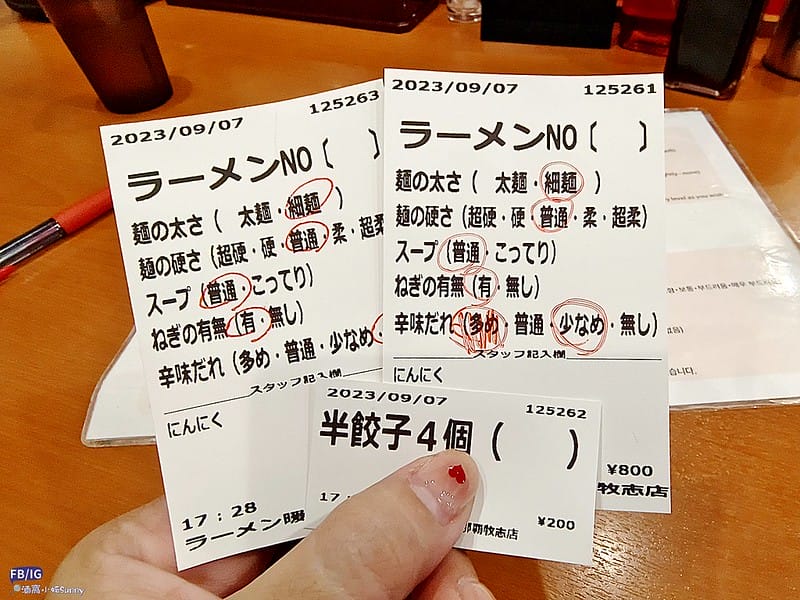 2023/09/07 125263
ラーメンNO〔 〕
麺の太さ( 太麺・細麺 )
麺の硬さ(超硬・硬・普通・柔・超柔
スープ(普通・こってり)
ねぎの有無(有・無し)
辛味だれ(多め・普通・少なめ・
スタッフ記入欄
にんにく
17:28
ラーメン暖
2023/09/07 125261
ラーメンNO〔 〕
麺の太さ( 太麺・細麺 )
麺の硬さ(超硬・硬・普通・柔・超柔)
スープ(普通・こってり)
ねぎの有無(有・無し)
辛味だれ(多め・普通・少なめ・無し)
スタッフ記入欄
にんにく
¥800
牧志店
2023/09/07 125262
半餃子4個( )
17
那覇牧志店
¥200
FB/IG